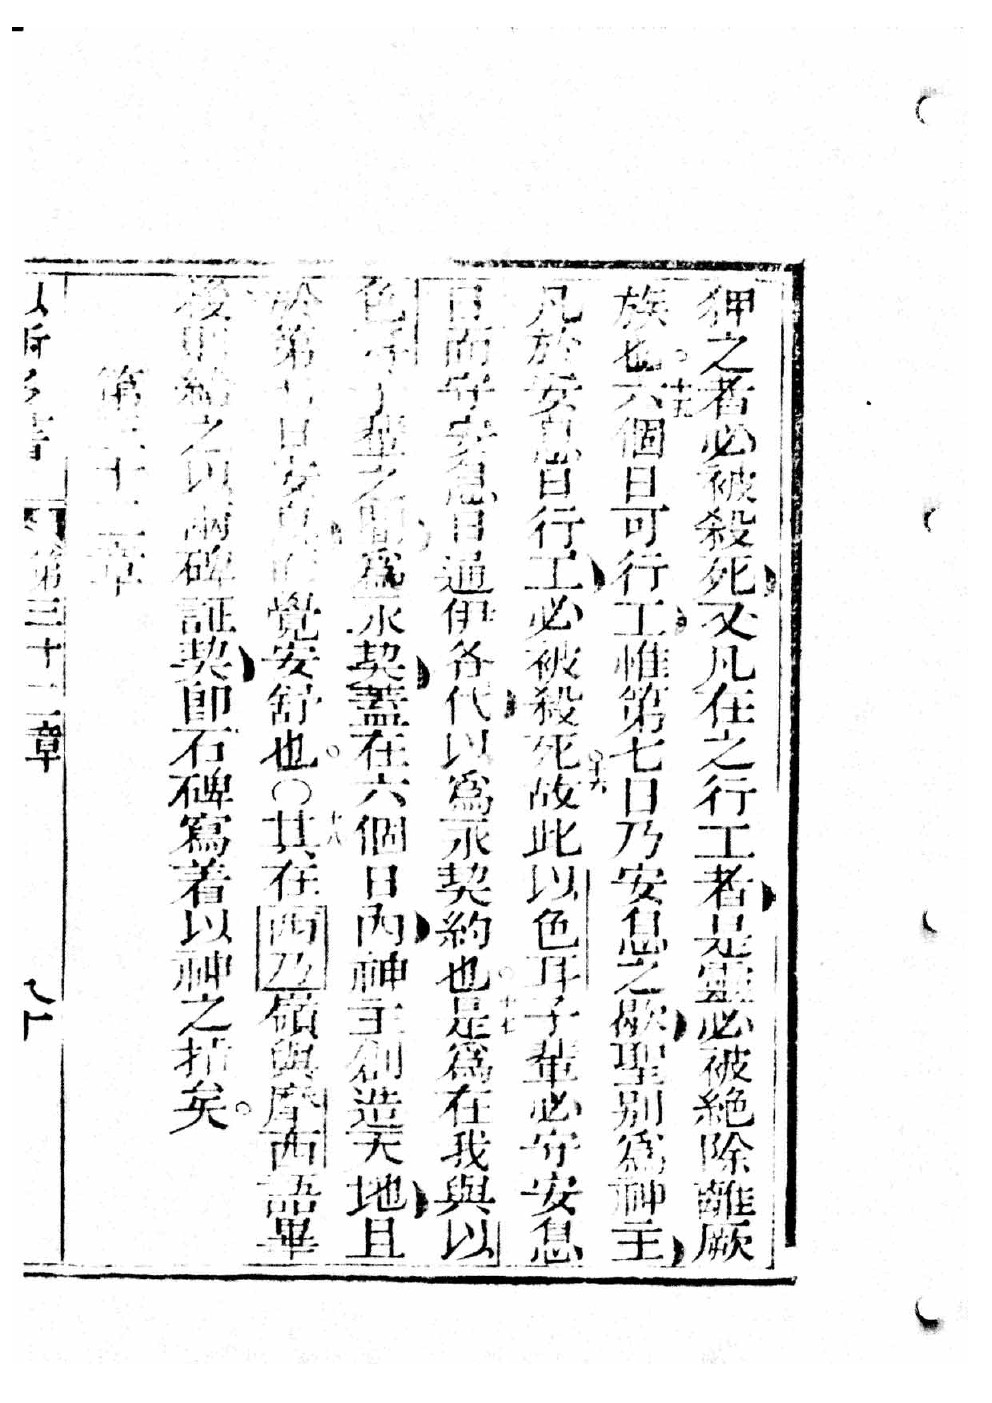 狎之者必被殺死又凡在之行工者是靈必被絕除離厥
族也。十五六個日可行工惟第七日乃安息之歇聖別為神主
凡於安息日行工必被殺死。十六故此以色耳子輩必守安息
日而守安息日通伊各代以為永契約也。十七是為在我與以
色耳子輩之間為永契蓋在六個日內神主創造天地且
於第七日安息而覺安舒也。○十八其在西乃嶺與摩西語畢
後則給之以兩碑証契即石碑寫着以神之指矣。
第三十二章
第三十二章